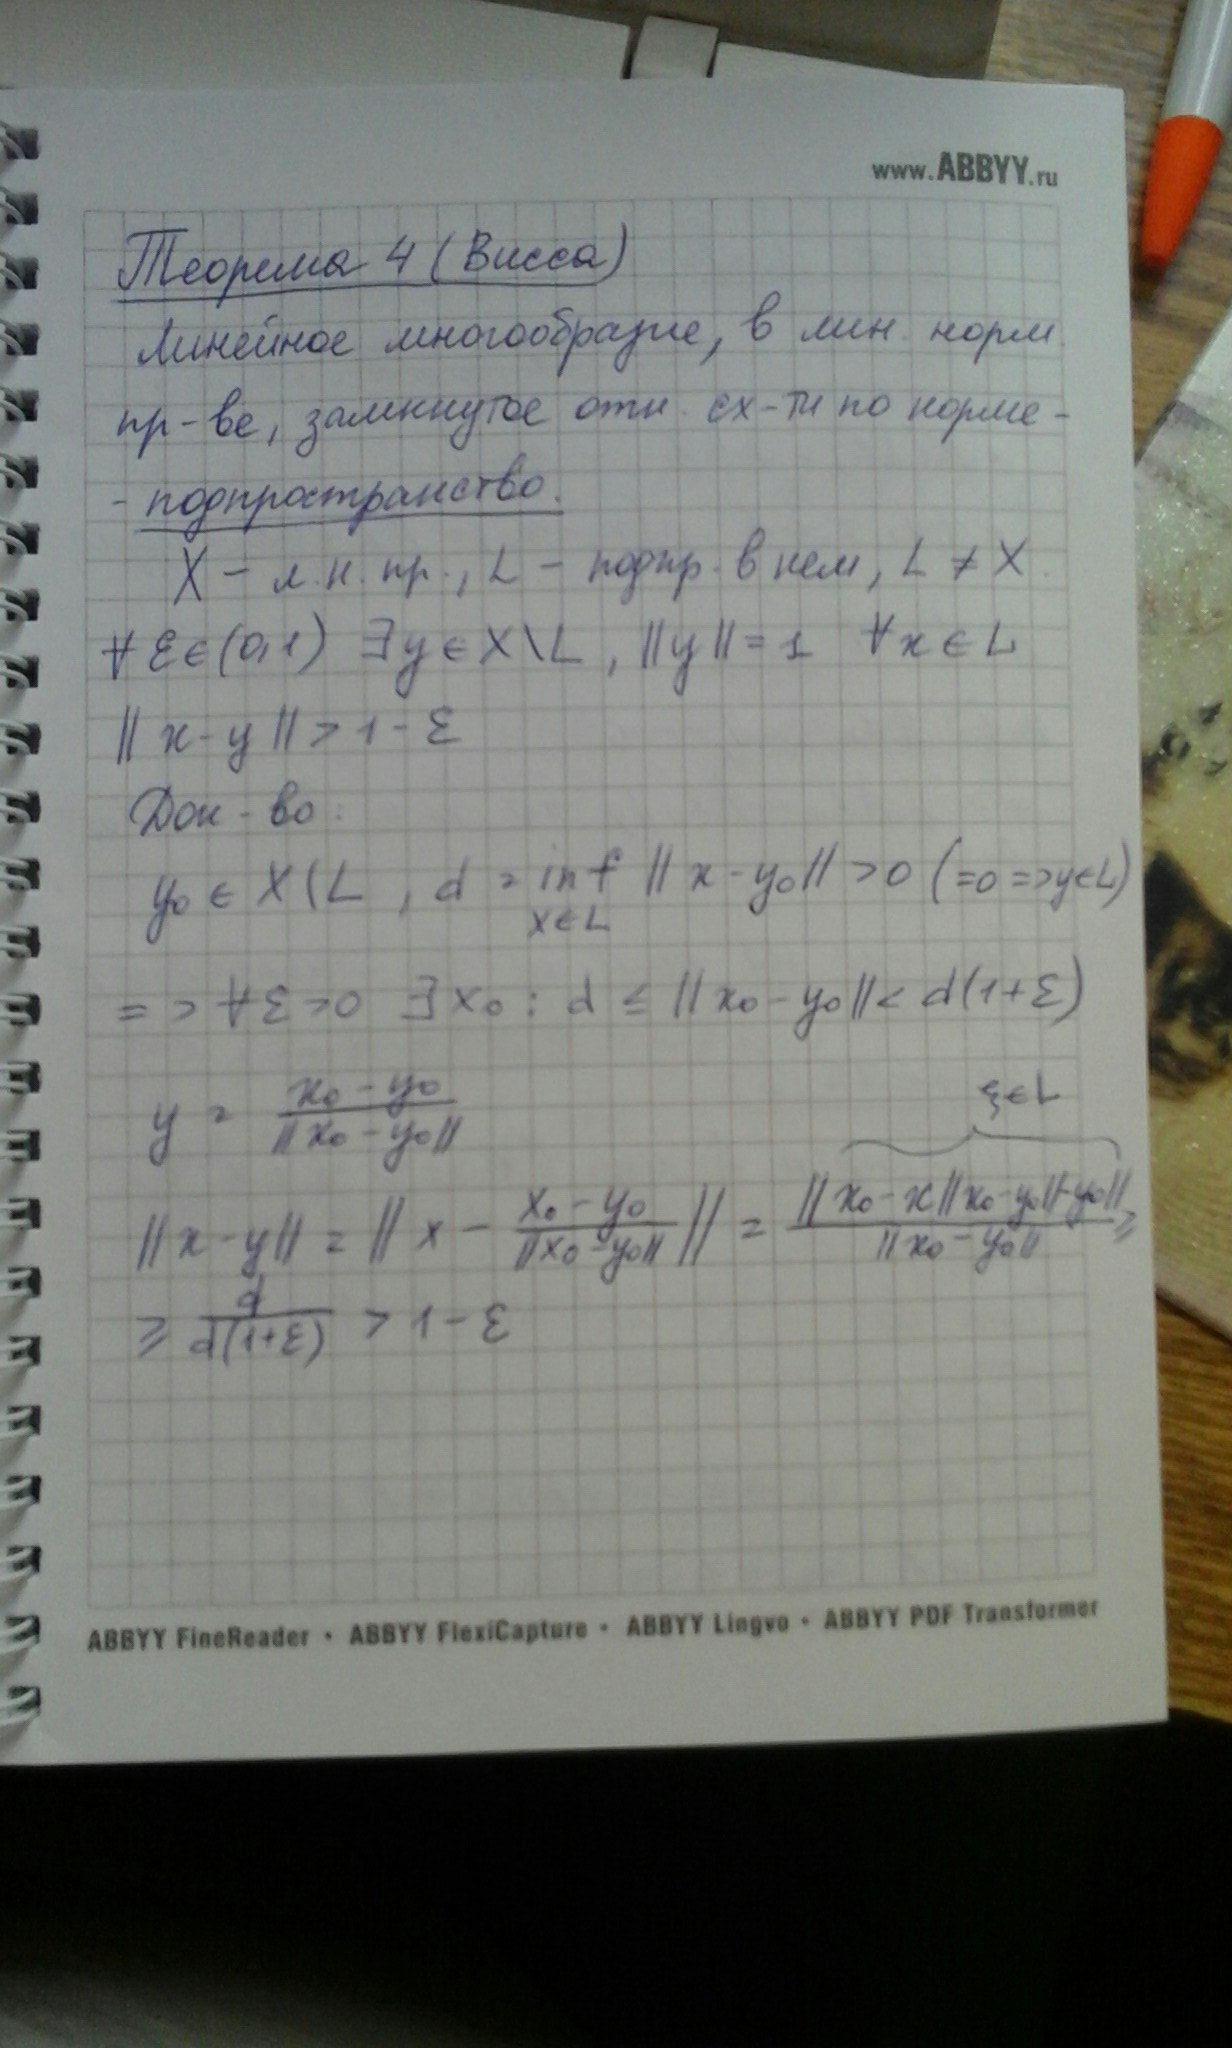 www.ABBYY.ru
Теорема 4 (Висса)
Линейное многообразие, в лин. норм.
пр-ве, замкнутое отн. сх-ти по норме -
- подпространство.
X – л.н. пр., L – подпр. в нем, L ≠ X.
∀ ε∈(0,1) ∃y∈X\L, ||y||=1 ∀x∈L
||x-y|| > 1-ε
Док-во:
y₀ ∈ X\L, d = inf ||x-y₀|| > 0 (=0 => y∈L)
x∈L
=> ∀ε>0 ∃x₀: d ≤ ||x₀-y₀|| < d(1+ε)
y = (x₀-y₀)/||x₀-y₀||
ξ∈L
||x-y|| = ||x - (x₀-y₀)/||x₀-y₀|| || = ||x₀-x||x₀-y₀||-y₀||/||x₀-y₀|| ≥
≥ d/(d(1+ε)) > 1-ε
ABBYY FineReader • ABBYY FlexiCapture • ABBYY Lingvo • ABBYY PDF Transformer